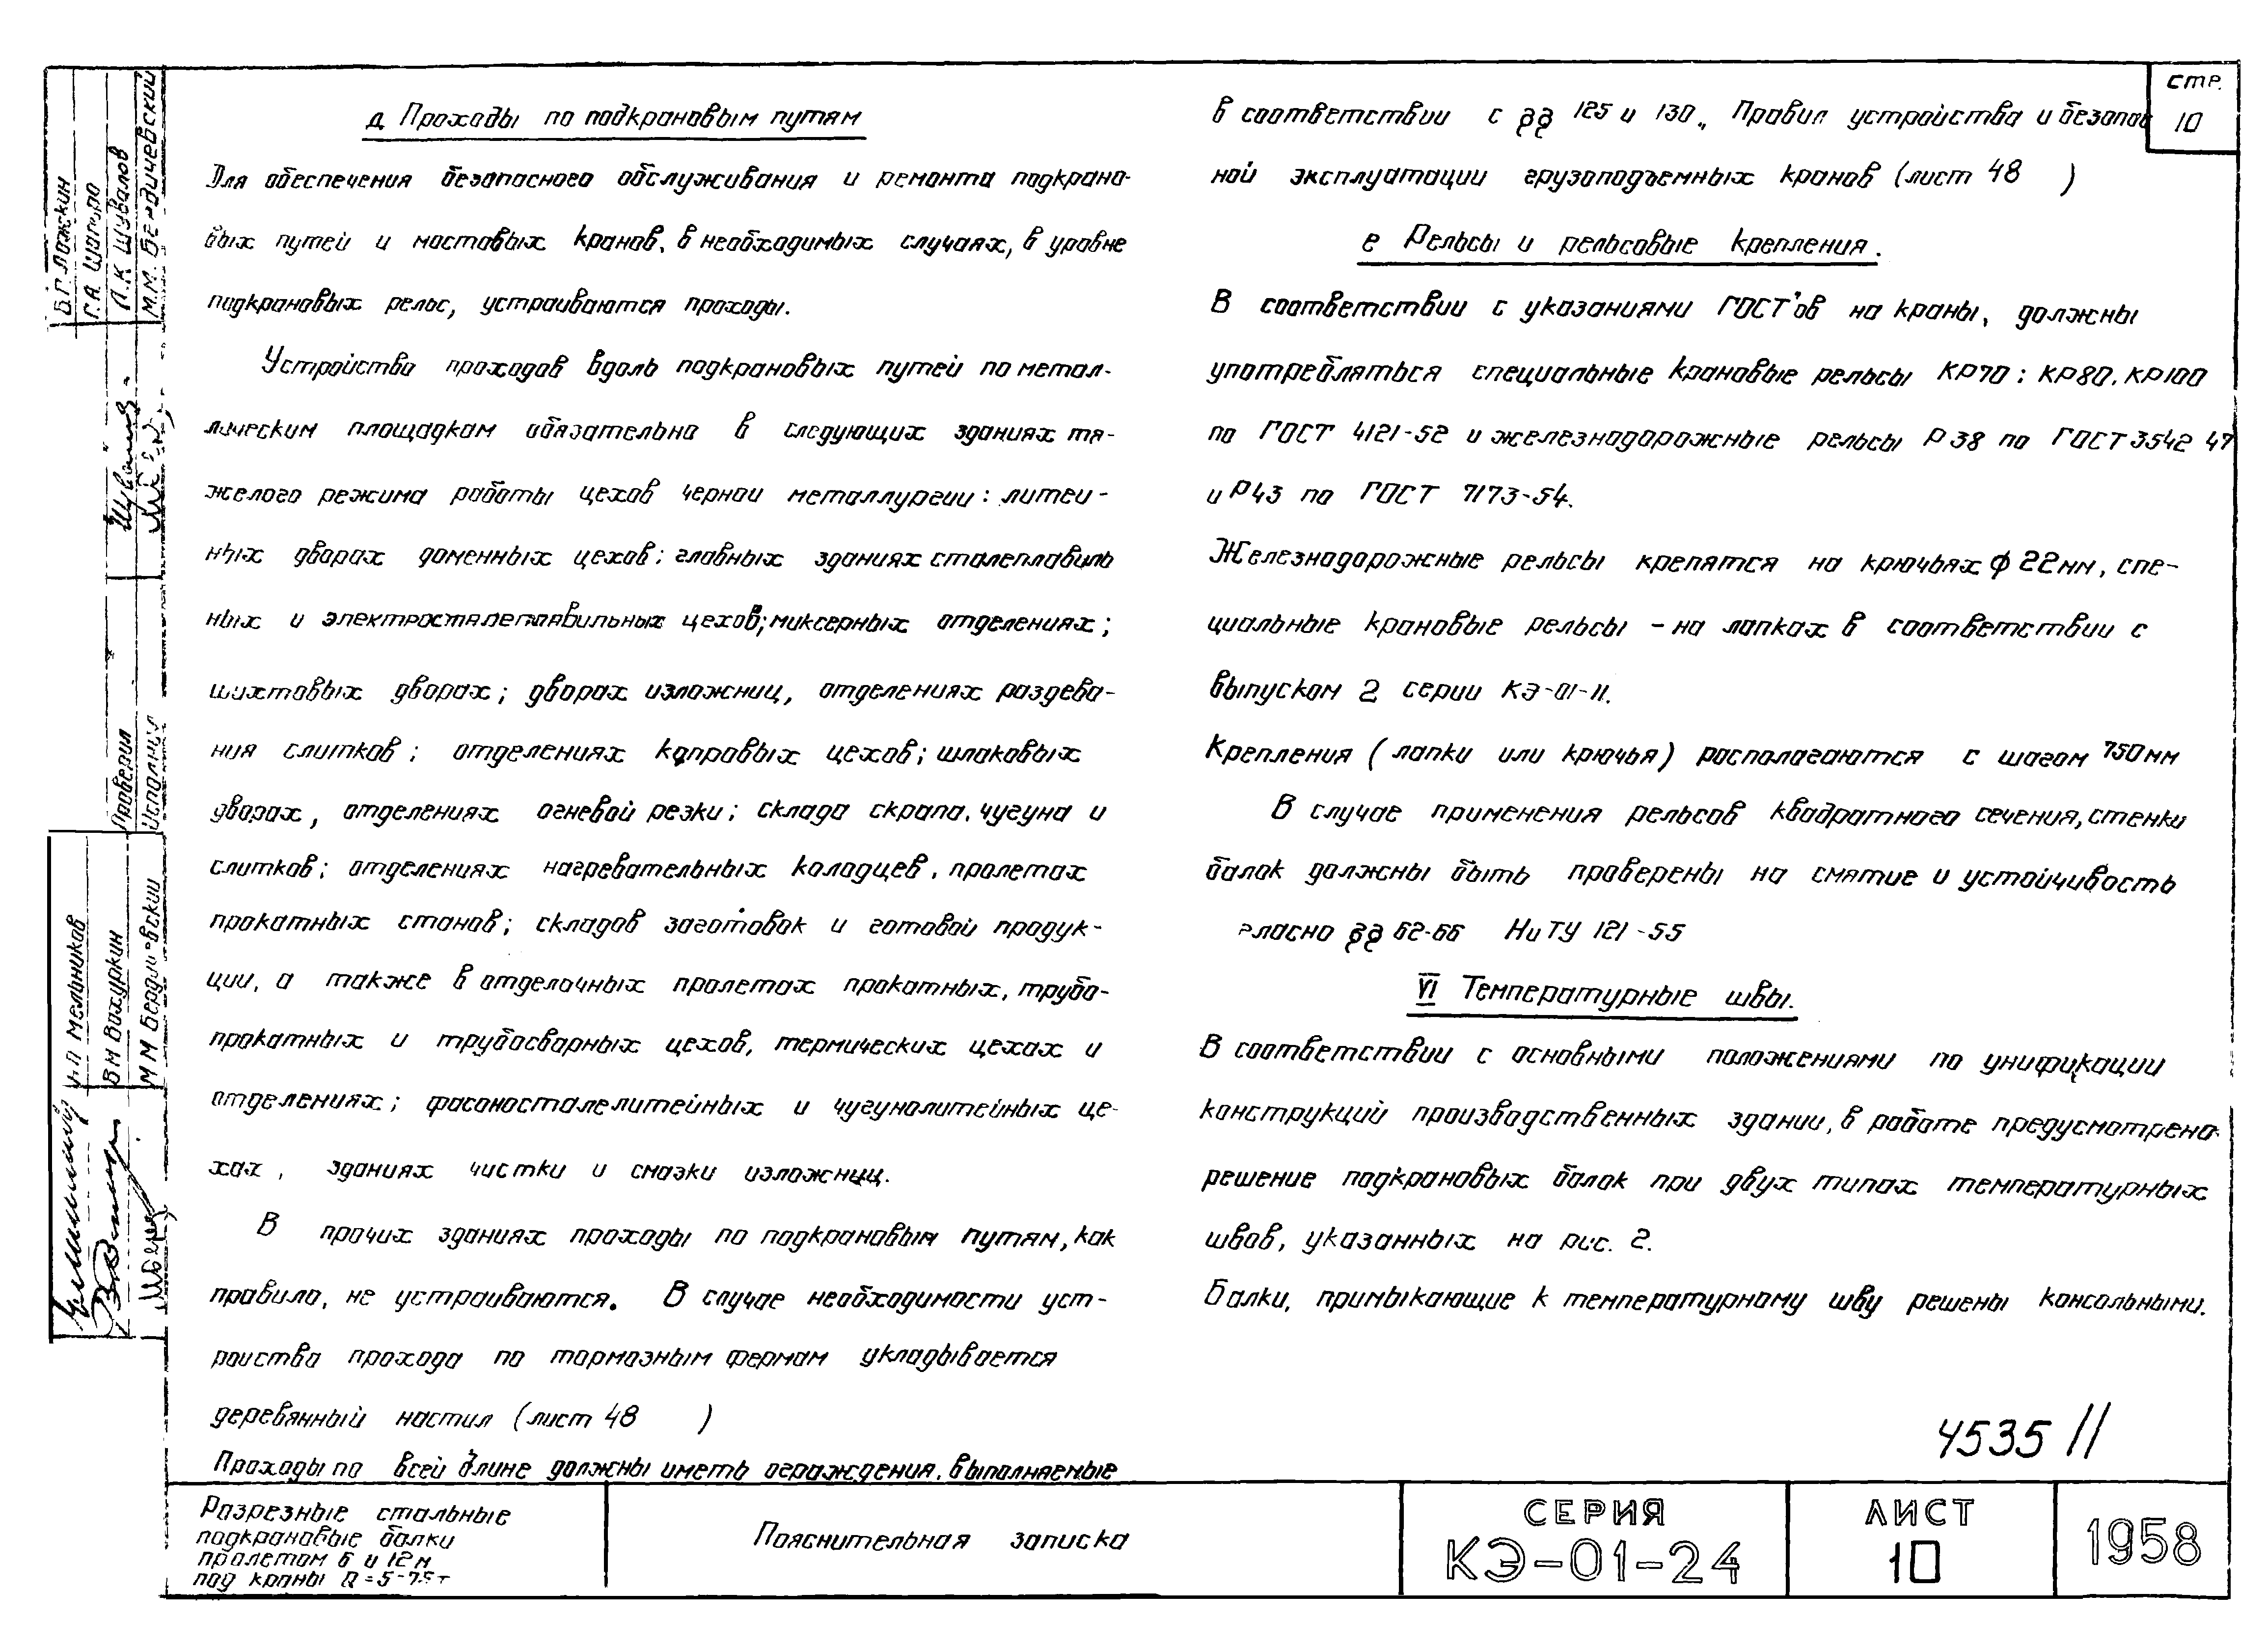 стр.
10
д Проходы по подкрановым путям
Для обеспечения безопасного обслуживания и ремонта подкрано-
вых путей и мостовых кранов, в необходимых случаях, в уровне
подкрановых рельс, устраиваются проходы.
Устройство проходов вдоль подкрановых путей по метал-
лическим площадкам обязательно в следующих зданиях тя-
желого режима работы цехов черной металлургии: литей-
ных дворах доменных цехов; главных зданиях сталеплавиль
ных и электросталеплавильных цехов; миксерных отделениях;
шихтовых дворах; дворах изложниц, отделениях раздева-
ния слитков; отделениях копровых цехов; шлаковых
дворах, отделениях огневой резки; склада скрапа, чугуна и
слитков; отделениях нагревательных колодцев, пролетах
прокатных станов; складов заготовок и готовой продук-
ции, а также в отделочных пролетах прокатных, трубо-
прокатных и трубосварных цехов, термических цехах и
отделениях; фасоносталелитейных и чугунолитейных це-
хах, зданиях чистки и смазки изложниц.
В прочих зданиях проходы по подкрановым путям, как
правило, не устраиваются. В случае необходимости уст-
роиства прохода по тормозным фермам укладывается
деревянный настил (лист 48 )
Проходы по всей длине должны иметь ограждения, выполняемые
в соответствии с §§ 125 и 130 „Правил устройства и безопас
ной эксплуатации грузоподъемных кранов (лист 48 )
е Рельсы и рельсовые крепления.
В соответствии с указаниями ГОСТ'ов на краны, должны
употребляться специальные крановые рельсы КР70; КР80, КР100
по ГОСТ 4121-52 и железнодорожные рельсы Р38 по ГОСТ 3542 47
и Р43 по ГОСТ 7173-54.
Железнодорожные рельсы крепятся на крючьях ф 22мм, спе-
циальные крановые рельсы - на лапках в соответствии с
выпуском 2 серии КЭ-01-11.
Крепления (лапки или крючья) располагаются с шагом 750мм
В случае применения рельсов квадратного сечения, стенки
балок должны быть проверены на смятие и устойчивость
гласно §§ 62-66 НиТУ 121-55
VI Температурные швы.
В соответствии с основными положениями по унификации
конструкций производственных здании, в работе предусмотрено
решение подкрановых балок при двух типах температурных
швов, указанных на рис. 2.
Балки, примыкающие к температурному шву решены консольными.
4535 11
Разрезные стальные
подкрановые балки
пролетом 6 и 12м
под краны Q=5-75т
Пояснительная записка
СЕРИЯ
КЭ-01-24
ЛИСТ
10
1958
Б.Г. Ложкин
Г.А. Шапиро
Л.К Шувалов
М.М. Бердичевский
Проверил
Исполнил
Н П Мельников
В М Вахуркин
М М Бердичевский